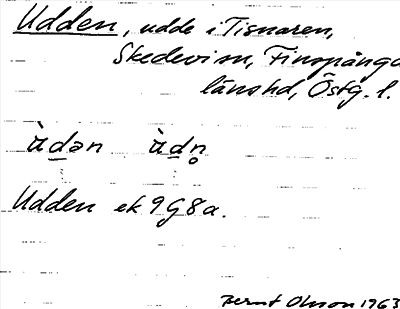 Udden, udde i Tisnaren,
Skedevi sn, Finspånga
länshd, Östg. l.
ùdən ùdn̥
Udden ek 9G8a.
Bernt Olsson 1963